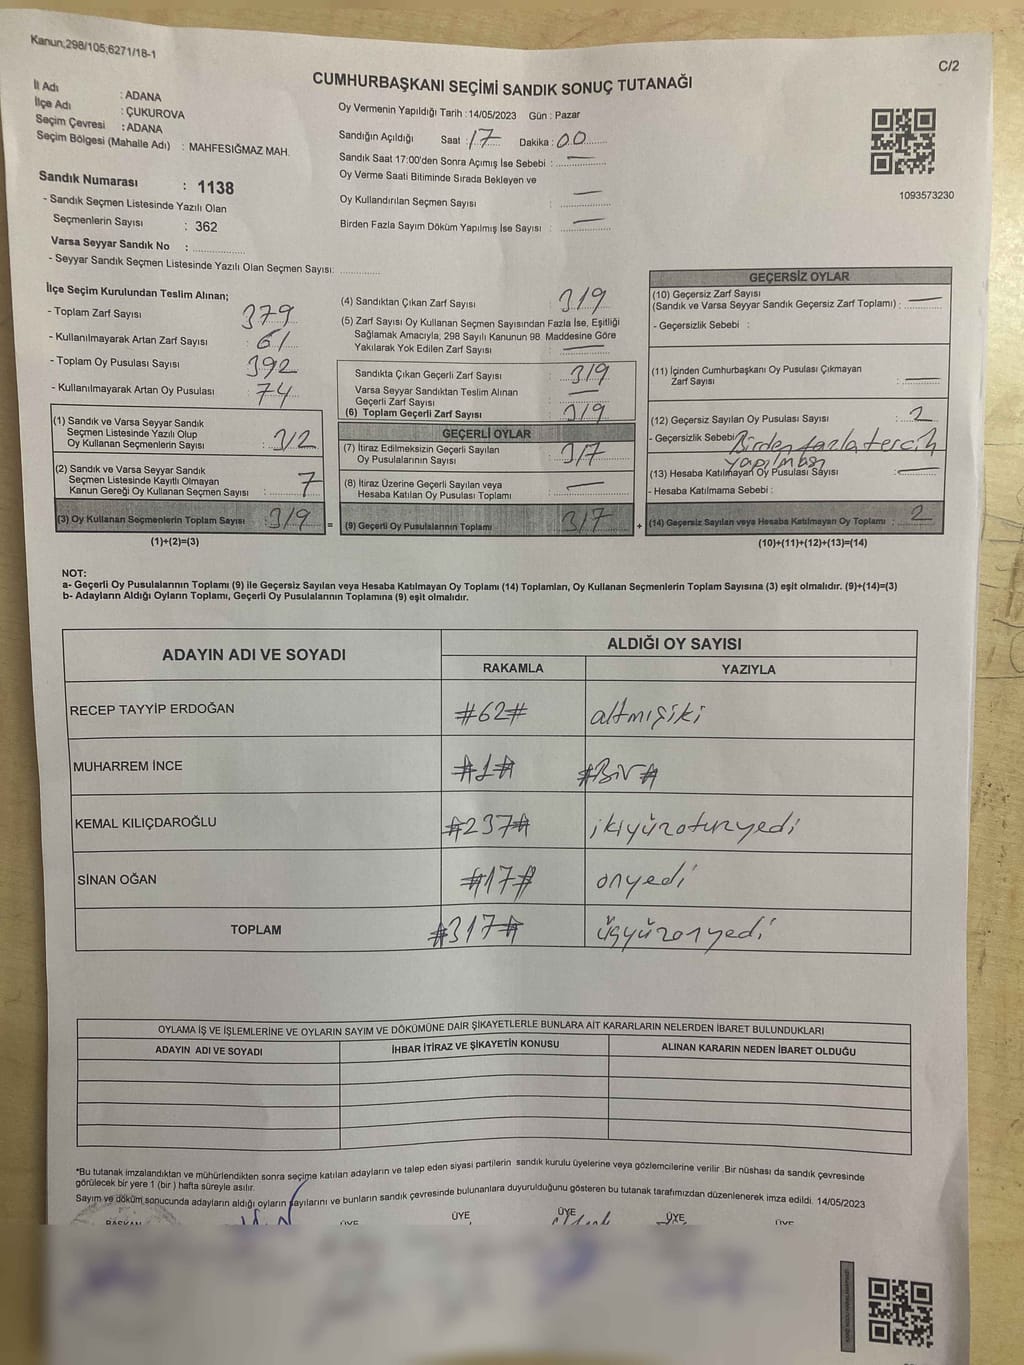 Kanun,298/105;6271/18-1
C/2
CUMHURBAŞKANI SEÇİMİ SANDIK SONUÇ TUTANAĞI
İl Adı : ADANA
İlçe Adı : ÇUKUROVA
Seçim Çevresi : ADANA
Seçim Bölgesi (Mahalle Adı) : MAHFESIĞMAZ MAH.
Sandık Numarası : 1138
- Sandık Seçmen Listesinde Yazılı Olan
Seçmenlerin Sayısı : 362
Varsa Seyyar Sandık No :
- Seyyar Sandık Seçmen Listesinde Yazılı Olan Seçmen Sayısı:
Oy Vermenin Yapıldığı Tarih : 14/05/2023 Gün : Pazar
Sandığın Açıldığı Saat : 17 Dakika : 00
Sandık Saat 17:00'den Sonra Açımış İse Sebebi : —
Oy Verme Saati Bitiminde Sırada Bekleyen ve
Oy Kullandırılan Seçmen Sayısı : —
Birden Fazla Sayım Döküm Yapılmış İse Sayısı : —
1093573230
İlçe Seçim Kurulundan Teslim Alınan;
- Toplam Zarf Sayısı 379
- Kullanılmayarak Artan Zarf Sayısı 61
- Toplam Oy Pusulası Sayısı 392
- Kullanılmayarak Artan Oy Pusulası 74
(1) Sandık ve Varsa Seyyar Sandık
Seçmen Listesinde Yazılı Olup
Oy Kullanan Seçmenlerin Sayısı : 312
(2) Sandık ve Varsa Seyyar Sandık
Seçmen Listesinde Kayıtlı Olmayan
Kanun Gereği Oy Kullanan Seçmen Sayısı : 7
(3) Oy Kullanan Seçmenlerin Toplam Sayısı : 319
(1)+(2)=(3)
(4) Sandıktan Çıkan Zarf Sayısı : 319
(5) Zarf Sayısı Oy Kullanan Seçmen Sayısından Fazla İse, Eşitliği
Sağlamak Amacıyla, 298 Sayılı Kanunun 98. Maddesine Göre
Yakılarak Yok Edilen Zarf Sayısı : —
Sandıkta Çıkan Geçerli Zarf Sayısı : 319
Varsa Seyyar Sandıktan Teslim Alınan
Geçerli Zarf Sayısı : —
(6) Toplam Geçerli Zarf Sayısı : 319
GEÇERLİ OYLAR
(7) İtiraz Edilmeksizin Geçerli Sayılan
Oy Pusulalarının Sayısı : 317
(8) İtiraz Üzerine Geçerli Sayılan veya
Hesaba Katılan Oy Pusulası Toplamı : —
= (9) Geçerli Oy Pusulalarının Toplamı : 317 +
GEÇERSİZ OYLAR
(10) Geçersiz Zarf Sayısı
(Sandık ve Varsa Seyyar Sandık Geçersiz Zarf Toplamı) : —
- Geçersizlik Sebebi :
(11) İçinden Cumhurbaşkanı Oy Pusulası Çıkmayan
Zarf Sayısı : —
(12) Geçersiz Sayılan Oy Pusulası Sayısı : 2
- Geçersizlik Sebebi : Birden fazla tercih
yapılması
(13) Hesaba Katılmayan Oy Pusulası Sayısı : —
- Hesaba Katılmama Sebebi :
(14) Geçersiz Sayılan veya Hesaba Katılmayan Oy Toplamı : 2
(10)+(11)+(12)+(13)=(14)
NOT:
a- Geçerli Oy Pusulalarının Toplamı (9) ile Geçersiz Sayılan veya Hesaba Katılmayan Oy Toplamı (14) Toplamları, Oy Kullanan Seçmenlerin Toplam Sayısına (3) eşit olmalıdır. (9)+(14)=(3)
b- Adayların Aldığı Oyların Toplamı, Geçerli Oy Pusulalarının Toplamına (9) eşit olmalıdır.
ADAYIN ADI VE SOYADI
ALDIĞI OY SAYISI
RAKAMLA YAZIYLA
RECEP TAYYİP ERDOĞAN #62# altmışiki
MUHARREM İNCE #1# #Bir#
KEMAL KILIÇDAROĞLU #237# ikiyüzotuzyedi
SİNAN OĞAN #17# onyedi
TOPLAM #317# üçyüzonyedi
OYLAMA İŞ VE İŞLEMLERİNE VE OYLARIN SAYIM VE DÖKÜMÜNE DAİR ŞİKAYETLERLE BUNLARA AİT KARARLARIN NELERDEN İBARET BULUNDUKLARI
ADAYIN ADI VE SOYADI İHBAR İTİRAZ VE ŞİKAYETİN KONUSU ALINAN KARARIN NEDEN İBARET OLDUĞU
*Bu tutanak imzalandıktan ve mühürlendikten sonra seçime katılan adayların ve talep eden siyasi partilerin sandık kurulu üyelerine veya gözlemcilerine verilir .Bir nüshası da sandık çevresinde
görülecek bir yere 1 (bir ) hafta süreyle asılır.
Sayım ve döküm sonucunda adayların aldığı oyların sayılarını ve bunların sandık çevresinde bulunanlara duyurulduğunu gösteren bu tutanak tarafımızdan düzenlenerek imza edildi. 14/05/2023
BAŞKAN ÜYE ÜYE ÜYE ÜYE ÜYE